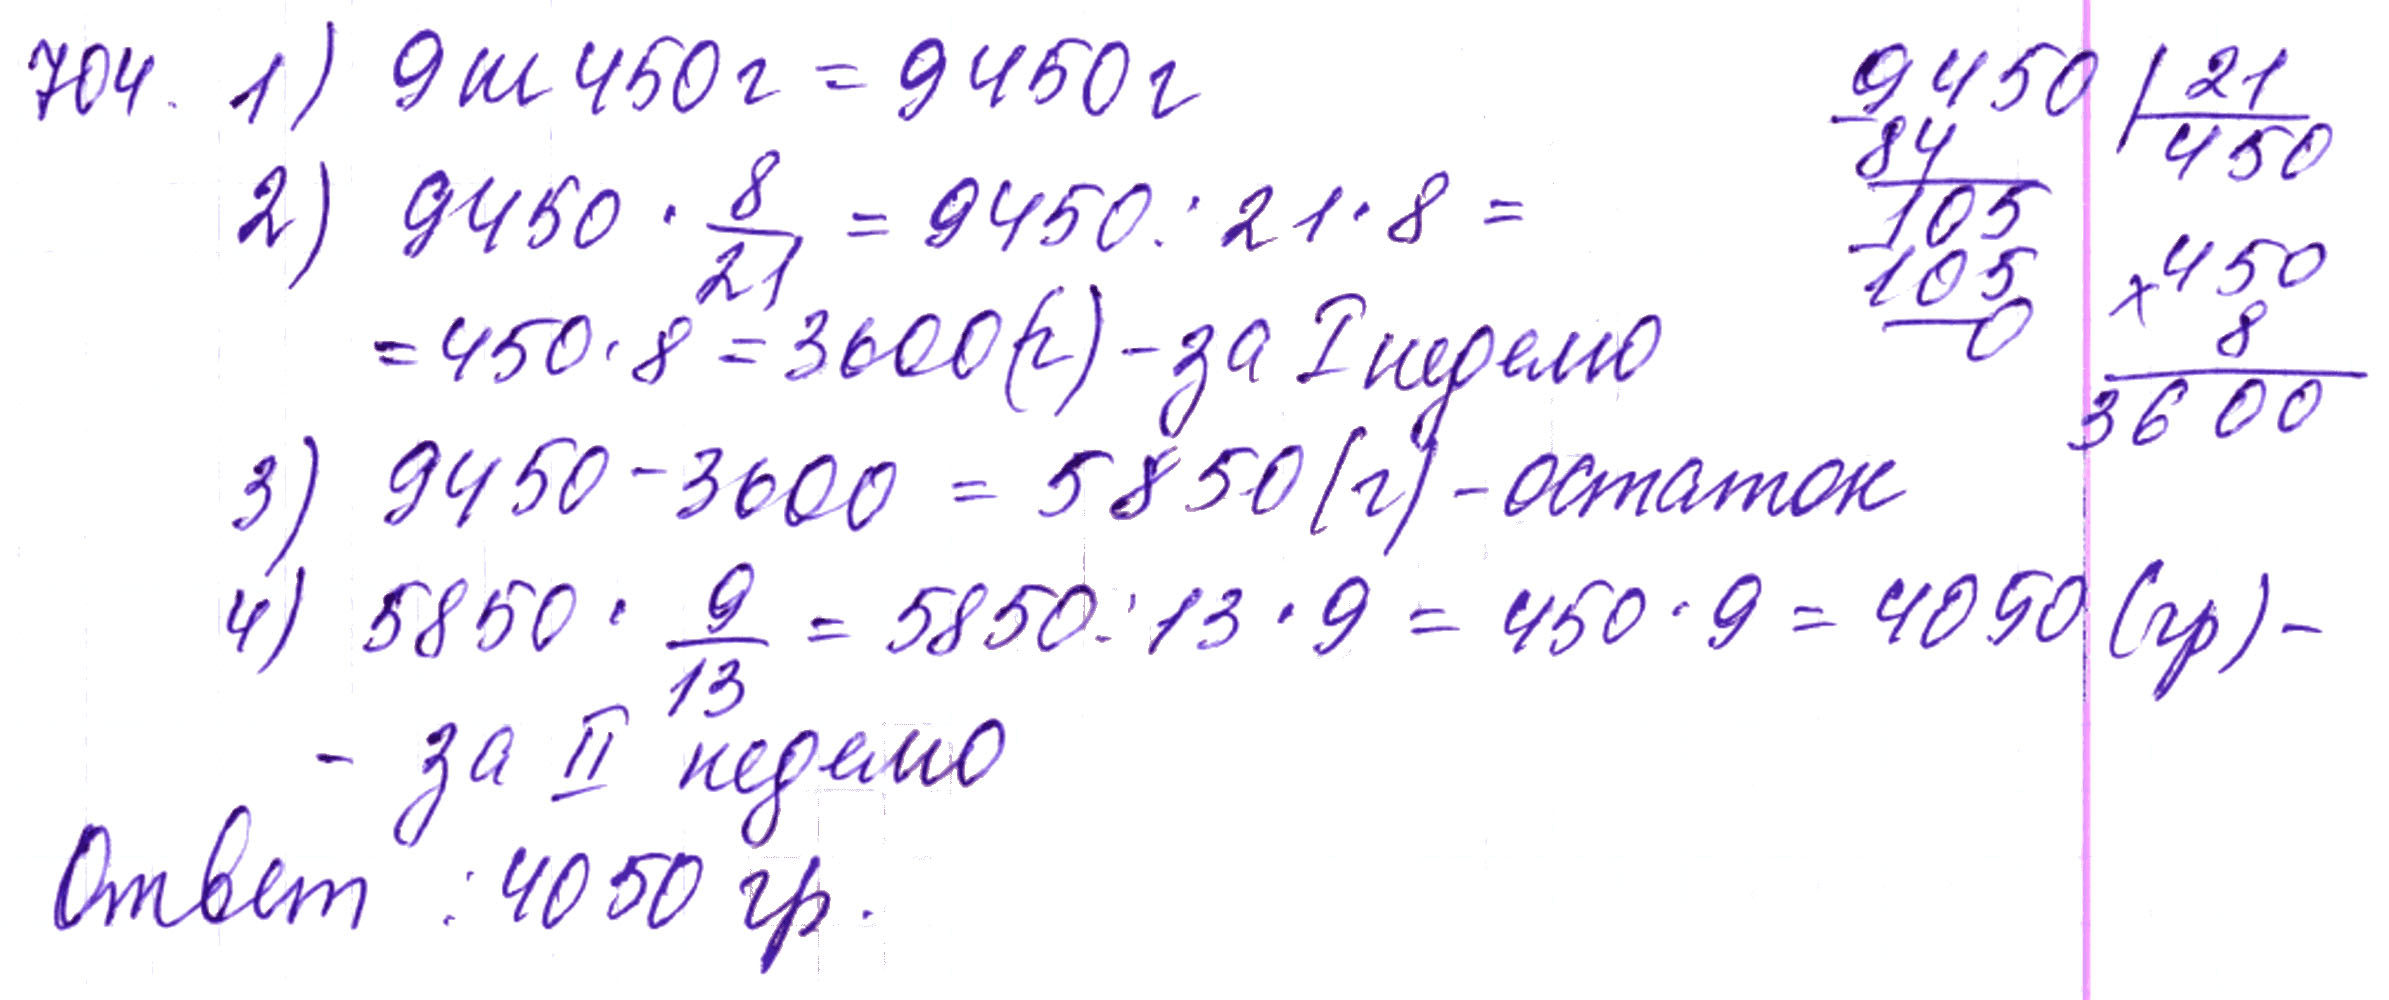 704. 1) 9 кг 450 г = 9450 г
2) 9450 · 8/21 = 9450 : 21 · 8 =
= 450 · 8 = 3600 (г) - за I неделю
3) 9450 - 3600 = 5850 (г) - остаток
4) 5850 · 9/13 = 5850 : 13 · 9 = 450 · 9 = 4050 (гр) -
- за II неделю
Ответ : 4050 гр.
9450 | 21
- 84 450
105
- 105
0
× 450
8
3600